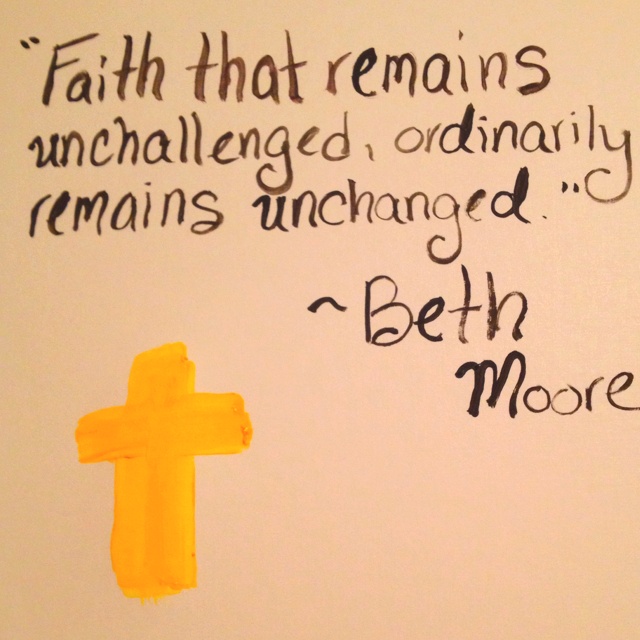 "Faith that remains
unchallenged, ordinarily
remains unchanged."
~Beth
Moore